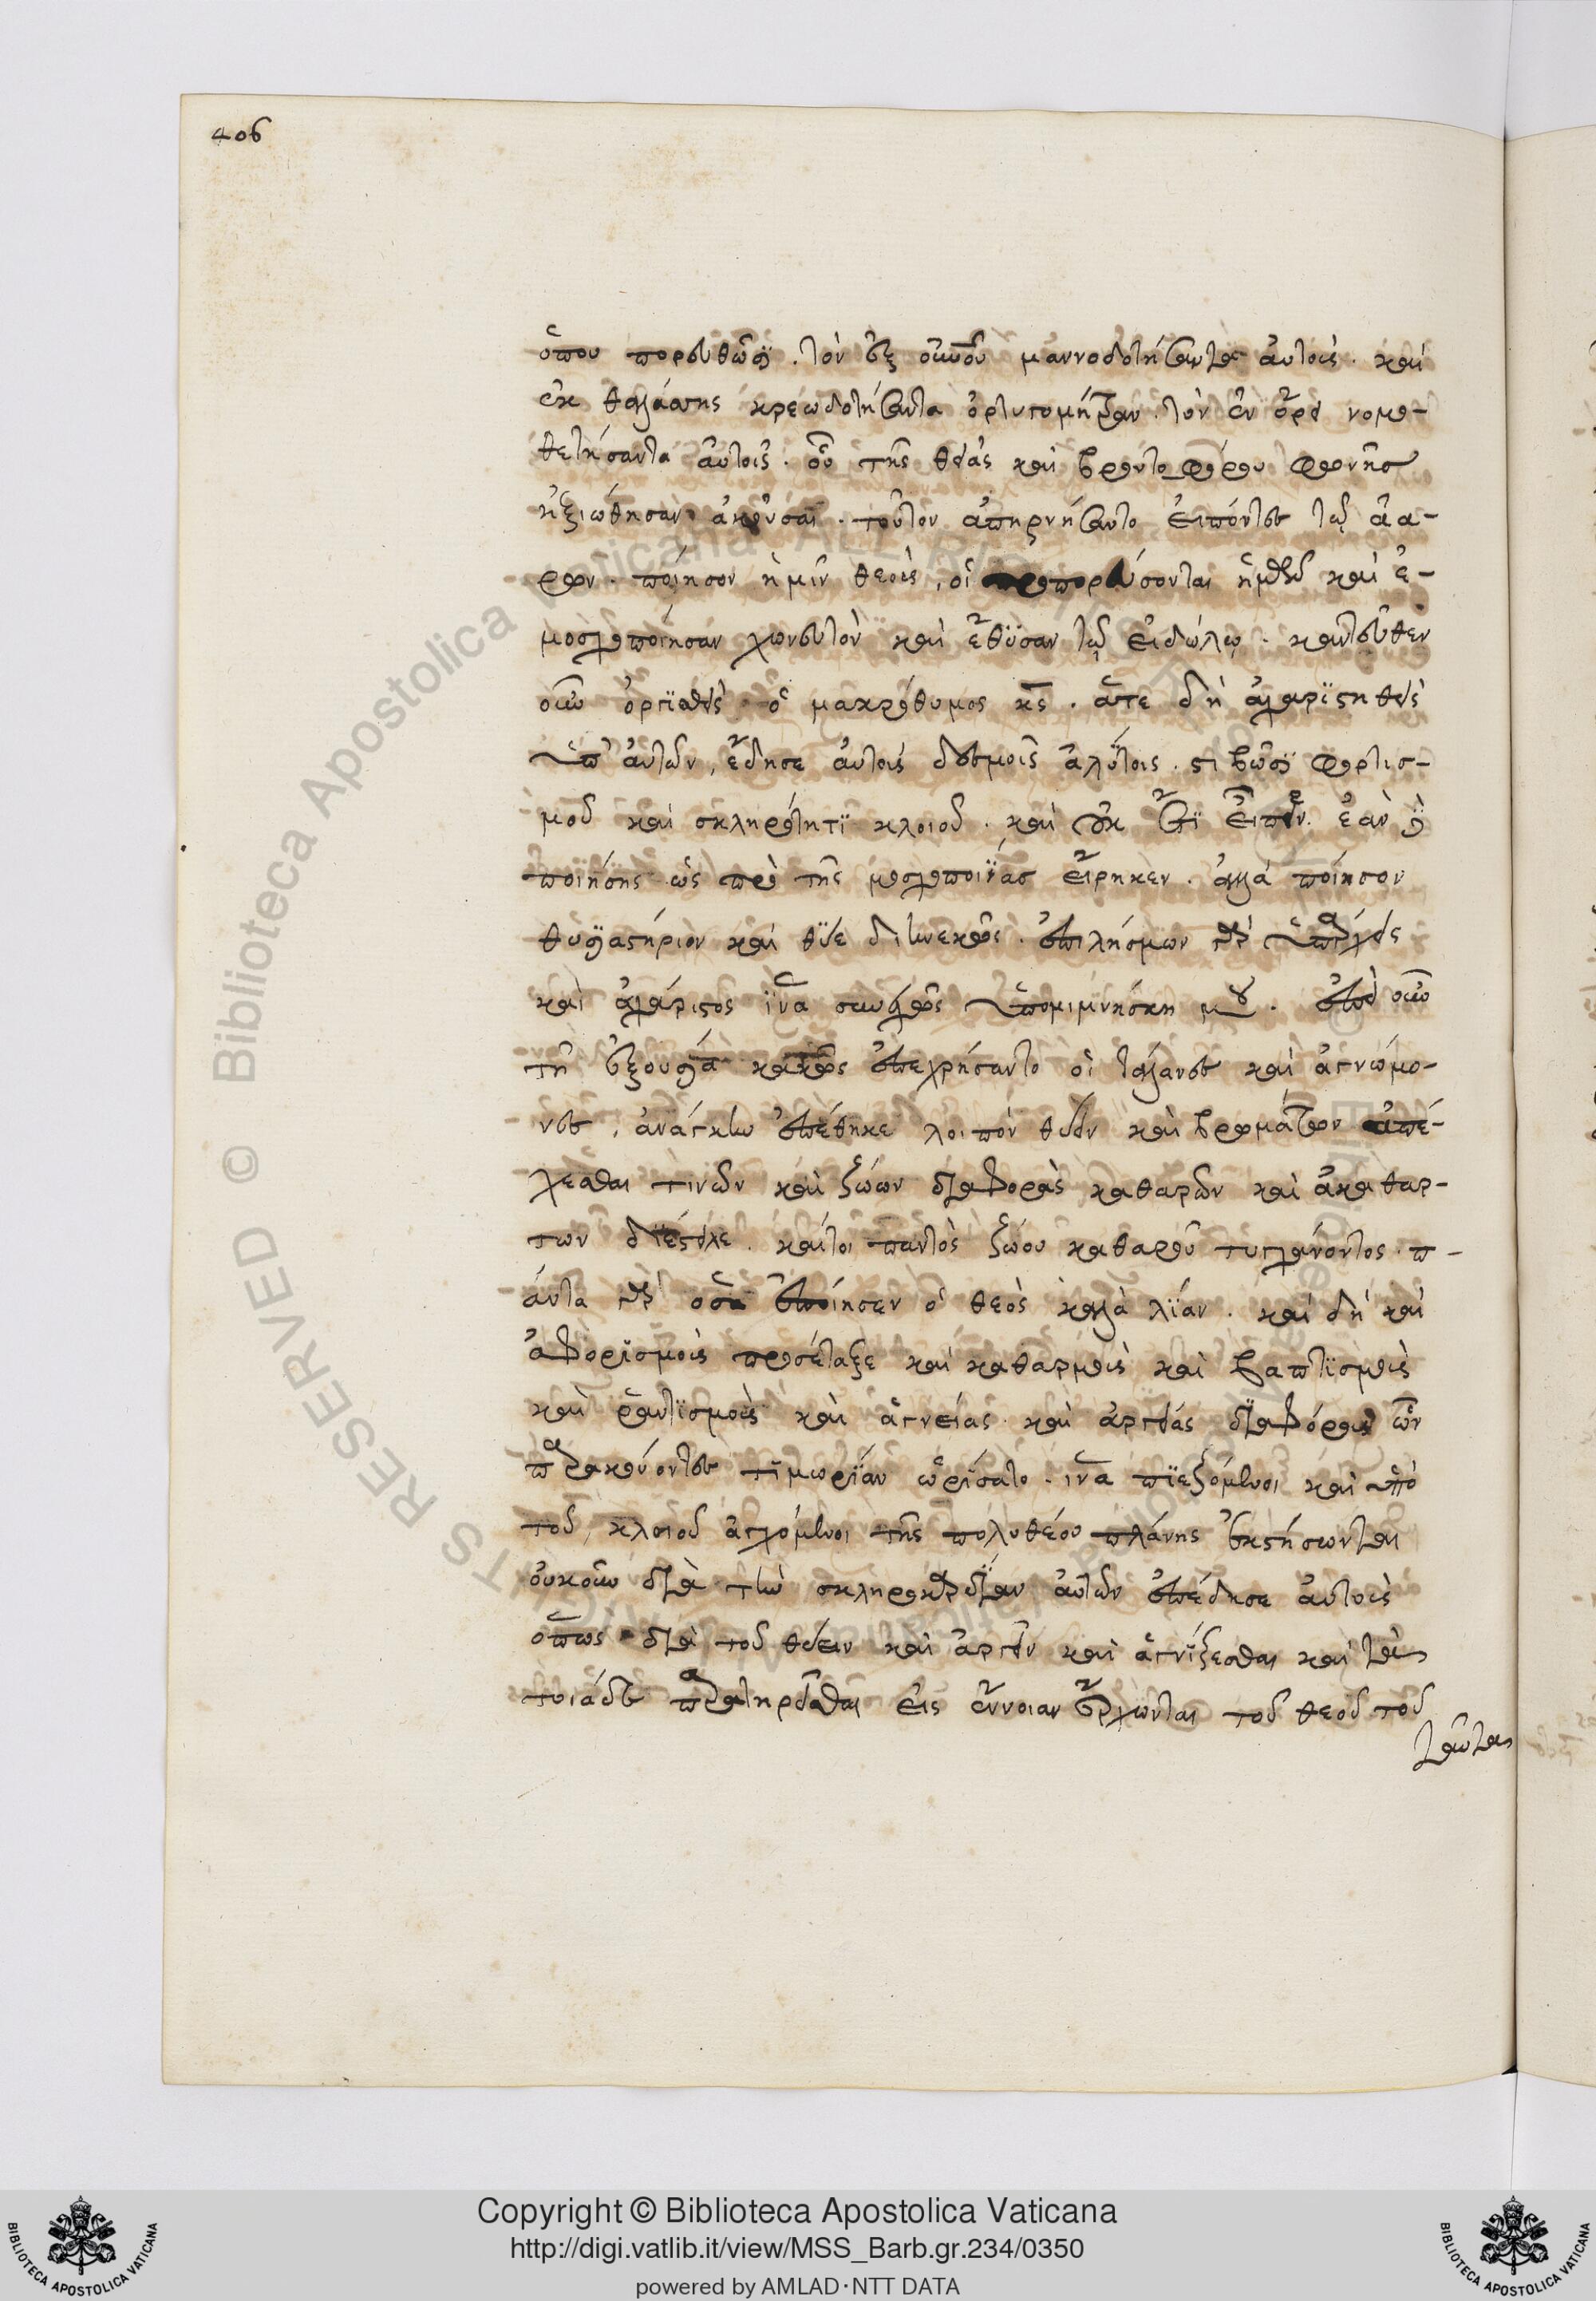 406
ὅπου πορευθῶσϊ. τὸν ἐξ οὐνοῦ μαννοδοτήσαντα αὐτοῖς. καὶ
ἐκ θαλάσσης κρεωδοτήσαντα ὀρτυγομήτραν. τὸν ἐν ὄρει νομο-
θετήσαντα αὐτοῖς. οὗ τῆς θείας καὶ βροντοφόρου φωνῆς
ἠξιώθησαν ἀκοῦσαι. τοῦτον ἀπηρνήσαντο εἰπόντες τῷ ἀα-
ρών. ποίησον ἡμῖν θεοὺς, οἳ προπορεύσονται ἡμῶν καὶ ἐ-
μοσχοποίησαν χωνευτὸν καὶ ἔθϋσαν τῷ εἰδώλῳ. κἀντεῦθεν
οὖν ὀργϊσθεὶς ὁ μακρόθυμος κς. ἅτε δὴ ἀχαρϊστηθεὶς
ὑπ' αὐτῶν, ἔδησε αὐτοὺς δεσμοῖς ἀλύτοις. στιβώσϊ φορτισ-
μοῦ καὶ σκληρότητϊ κλοιοῦ. καὶ οὐκ ἔτϊ εἶπεν. ἐὰν
ποιήσης ὡς πρὸ τῆς μοσχοποιΐας εἴρηκεν. ἀλλὰ ποίησον
θυσϊαστήριον καὶ θῦε διηνεκῶς. ἐπιλήσμων γὰρ ὑπάρχεις
καὶ ἀχάριστος ἵνα συνεχῶς ὑπομιμνήσκη μου. ἐπεὶ οὖν
τῇ ἐξουσίᾳ κακῶς ἐπεχρήσαντο οἱ τάλανες καὶ ἀγνώμο-
νες, ἀνάγκην ἐπέθηκε λοιπὸν θύειν καὶ βρωμάτων ἀπέ-
χεσθαι τινῶν καὶ ζώων διαφορὰς καθαρῶν καὶ ἀκαθάρ-
των διέστειλε. καίτοι παντὸς ζώου καθαροῦ τυγχάνοντος. π-
άντα γὰρ ὅσα ἐποίησεν ὁ θεὸς καλὰ λϊαν. καὶ δὴ καὶ
ἀφορϊσμοὺς προσέταξε καὶ καθαρμοὺς καὶ βαπτϊσμοὺς
καὶ ῥαντϊσμοὺς καὶ ἁγνείας καὶ ἀργείας διαφόρους ὧν
παρακούοντες τϊμωρϊαν ὡρϊσατο. ἵνα πϊεζόμενοι καὶ ὑπὸ
τοῦ κλοιοῦ ἀγχόμενοι τῆς πολυθέου πλάνης ἐκστήσωνται
οὐκοῦν διὰ τὴν σκληροκαρδϊαν αὐτῶν ἐπέδησε αὐτοὺς
ὅπως διὰ τοῦ θύειν καὶ ἀργεῖν καὶ ἁγνΐζεσθαι καὶ τὰς
τοιάσδε παρατηρεῖσθαι εἰς ἔννοιαν ἔρχωνται τοῦ θεοῦ τοῦ
ταῦτα
Copyright © Biblioteca Apostolica Vaticana
http://digi.vatlib.it/view/MSS_Barb.gr.234/0350
powered by AMLAD·NTT DATA